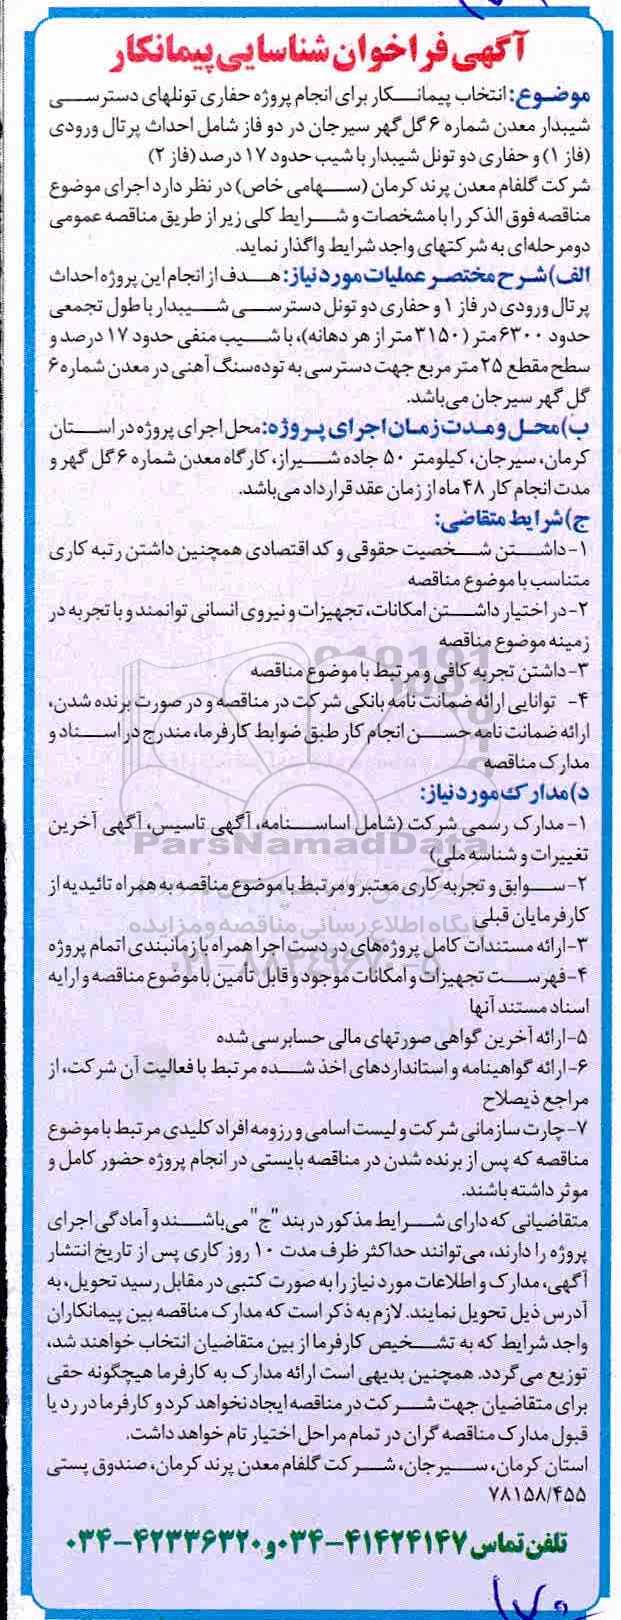 آگهی فراخوان شناسایی پیمانکار
موضوع: انتخاب پیمانکار برای انجام پروژه حفاری تونلهای دسترسی
شیبدار معدن شماره ۶ گل گهر سیرجان در دو فاز شامل احداث پرتال ورودی
(فاز ۱) و حفاری دو تونل شیبدار با شیب حدود ۱۷ درصد (فاز ۲)
شرکت گلفام معدن پرند کرمان (سهامی خاص) در نظر دارد اجرای موضوع
مناقصه فوق الذکر را با مشخصات و شرایط کلی زیر از طریق مناقصه عمومی
دومرحله‌ای به شرکتهای واجد شرایط واگذار نماید.
الف) شرح مختصر عملیات مورد نیاز: هدف از انجام این پروژه احداث
پرتال ورودی در فاز ۱ و حفاری دو تونل دسترسی شیبدار با طول تجمعی
حدود ۶۳۰۰ متر (۳۱۵۰ متر از هر دهانه)، با شیب منفی حدود ۱۷ درصد و
سطح مقطع ۲۵ متر مربع جهت دسترسی به توده‌سنگ آهنی در معدن شماره ۶
گل گهر سیرجان می‌باشد.
ب) محل و مدت زمان اجرای پروژه: محل اجرای پروژه در استان
کرمان، سیرجان، کیلومتر ۵۰ جاده شیراز، کارگاه معدن شماره ۶ گل گهر و
مدت انجام کار ۴۸ ماه از زمان عقد قرارداد می‌باشد.
ج) شرایط متقاضی:
۱- داشتن شخصیت حقوقی و کد اقتصادی همچنین داشتن رتبه کاری
متناسب با موضوع مناقصه
۲- در اختیار داشتن امکانات، تجهیزات و نیروی انسانی توانمند و با تجربه در
زمینه موضوع مناقصه
۳- داشتن تجربه کافی و مرتبط با موضوع مناقصه
۴- توانایی ارائه ضمانت نامه بانکی شرکت در مناقصه و در صورت برنده شدن،
ارائه ضمانت نامه حسن انجام کار طبق ضوابط کارفرما، مندرج در اسناد و
مدارک مناقصه
د) مدارک مورد نیاز:
۱- مدارک رسمی شرکت (شامل اساسنامه، آگهی تاسیس، آگهی آخرین
تغییرات و شناسه ملی)
ParsNamadData
۲- سوابق و تجربه کاری معتبر و مرتبط با موضوع مناقصه به همراه تائیدیه از
کارفرمایان قبلی
پایگاه اطلاع رسانی مناقصه و مزایده
۳- ارائه مستندات کامل پروژه‌های در دست اجرا همراه با زمانبندی اتمام پروژه
۴- فهرست تجهیزات و امکانات موجود و قابل تأمین با موضوع مناقصه و ارایه
اسناد مستند آنها
۵- ارائه آخرین گواهی صورتهای مالی حسابرسی شده
۶- ارائه گواهینامه و استانداردهای اخذ شده مرتبط با فعالیت آن شرکت، از
مراجع ذیصلاح
۷- چارت سازمانی شرکت و لیست اسامی و رزومه افراد کلیدی مرتبط با موضوع
مناقصه که پس از برنده شدن در مناقصه بایستی در انجام پروژه حضور کامل و
موثر داشته باشند.
متقاضیانی که دارای شرایط مذکور در بند "ج" می‌باشند و آمادگی اجرای
پروژه را دارند، می‌توانند حداکثر ظرف مدت ۱۰ روز کاری پس از تاریخ انتشار
آگهی، مدارک و اطلاعات مورد نیاز را به صورت کتبی در مقابل رسید تحویل، به
آدرس ذیل تحویل نمایند. لازم به ذکر است که مدارک مناقصه بین پیمانکاران
واجد شرایط که به تشخیص کارفرما از بین متقاضیان انتخاب خواهند شد،
توزیع می گردد. همچنین بدیهی است ارائه مدارک به کارفرما هیچگونه حقی
برای متقاضیان جهت شرکت در مناقصه ایجاد نخواهد کرد و کارفرما در رد یا
قبول مدارک مناقصه گران در تمام مراحل اختیار تام خواهد داشت.
استان کرمان، سیرجان، شرکت گلفام معدن پرند کرمان، صندوق پستی
۷۸۱۵۸/۴۵۵
تلفن تماس ۴۱۴۲۴۱۴۷-۰۳۴ و ۴۲۳۳۶۳۲۰-۰۳۴